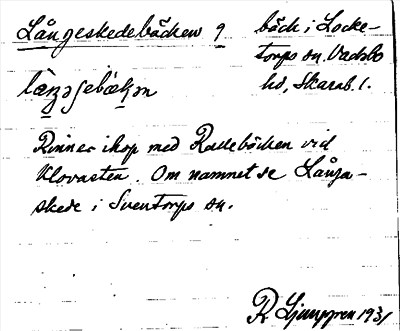 Långeskedebäcken 9
bäck i Locke-
torps sn. Vadsbo
hd, Skarab. l.
Rinner ihop med Rudebäcken vid
Klovasten. Om namnet se Långa-
skede i Sventorps sn.
R Ljunggren 1931